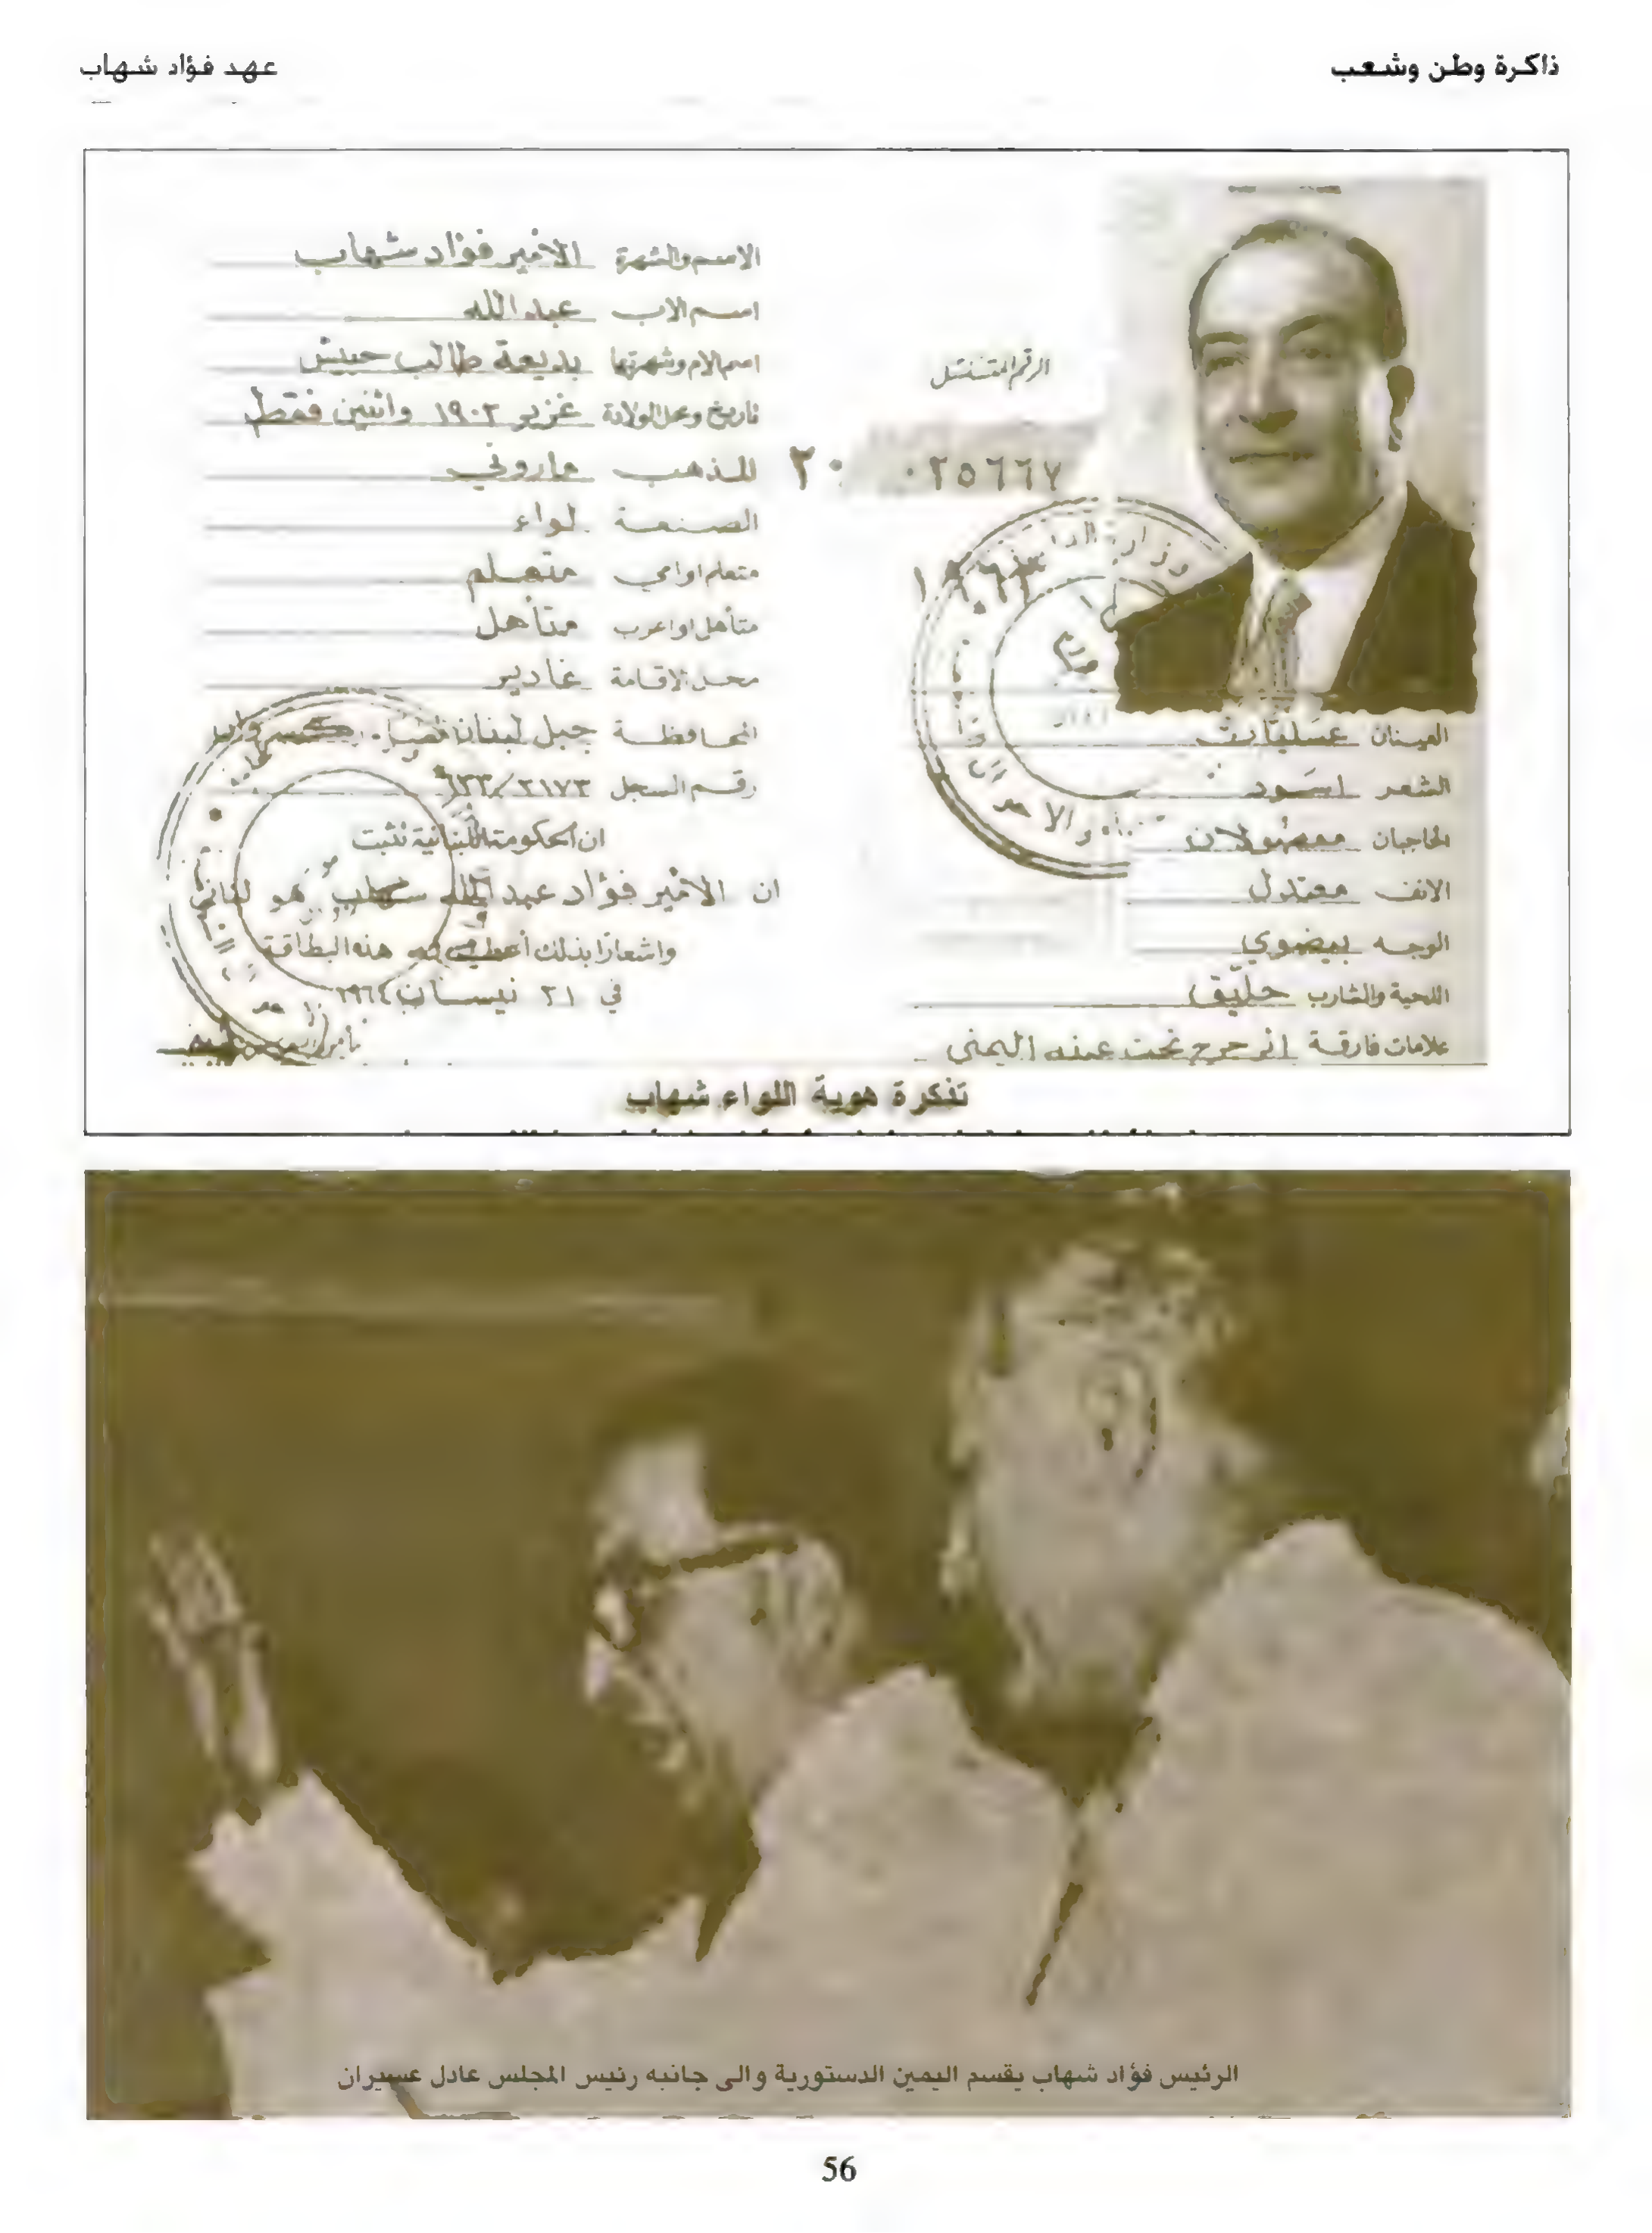 ذاكرة وطن وشعب
عهد فؤاد شهاب
الاسم والشهرة الامير فؤاد شهاب
اسم الاب عبد الله
اسم الام وشهرتها بديعة طالب حبيش
تاريخ ومحل الولادة غزير ١٩٠٢ واثنين فقط
المذهب ماروني
الصنعة لواء
متعلم او امي متعلم
متأهل او اعزب متأهل
محل الاقامة غادير
المحافظة جبل لبنان قضاء كسروان
رقم السجل
ان الحكومة اللبنانية تثبت
ان الامير فؤاد عبد الله شهاب هو لبناني
واشعارا بذلك أعطيت له هذه البطاقة
في ٢١ نيسان ١٩٦٤
الرقم المتسلسل
٢٠ ٠٢٥٦٦٧
وزارة الداخلية
العينان عسليتان
الشعر اسود
الحاجبان
الانف معتدل
الوجه بيضوي
اللحية والشارب حليق
علامات فارقة اثر جرح تحت عينه اليمنى
تذكرة هوية اللواء شهاب
الرئيس فؤاد شهاب يقسم اليمين الدستورية والى جانبه رئيس المجلس عادل عسيران
56